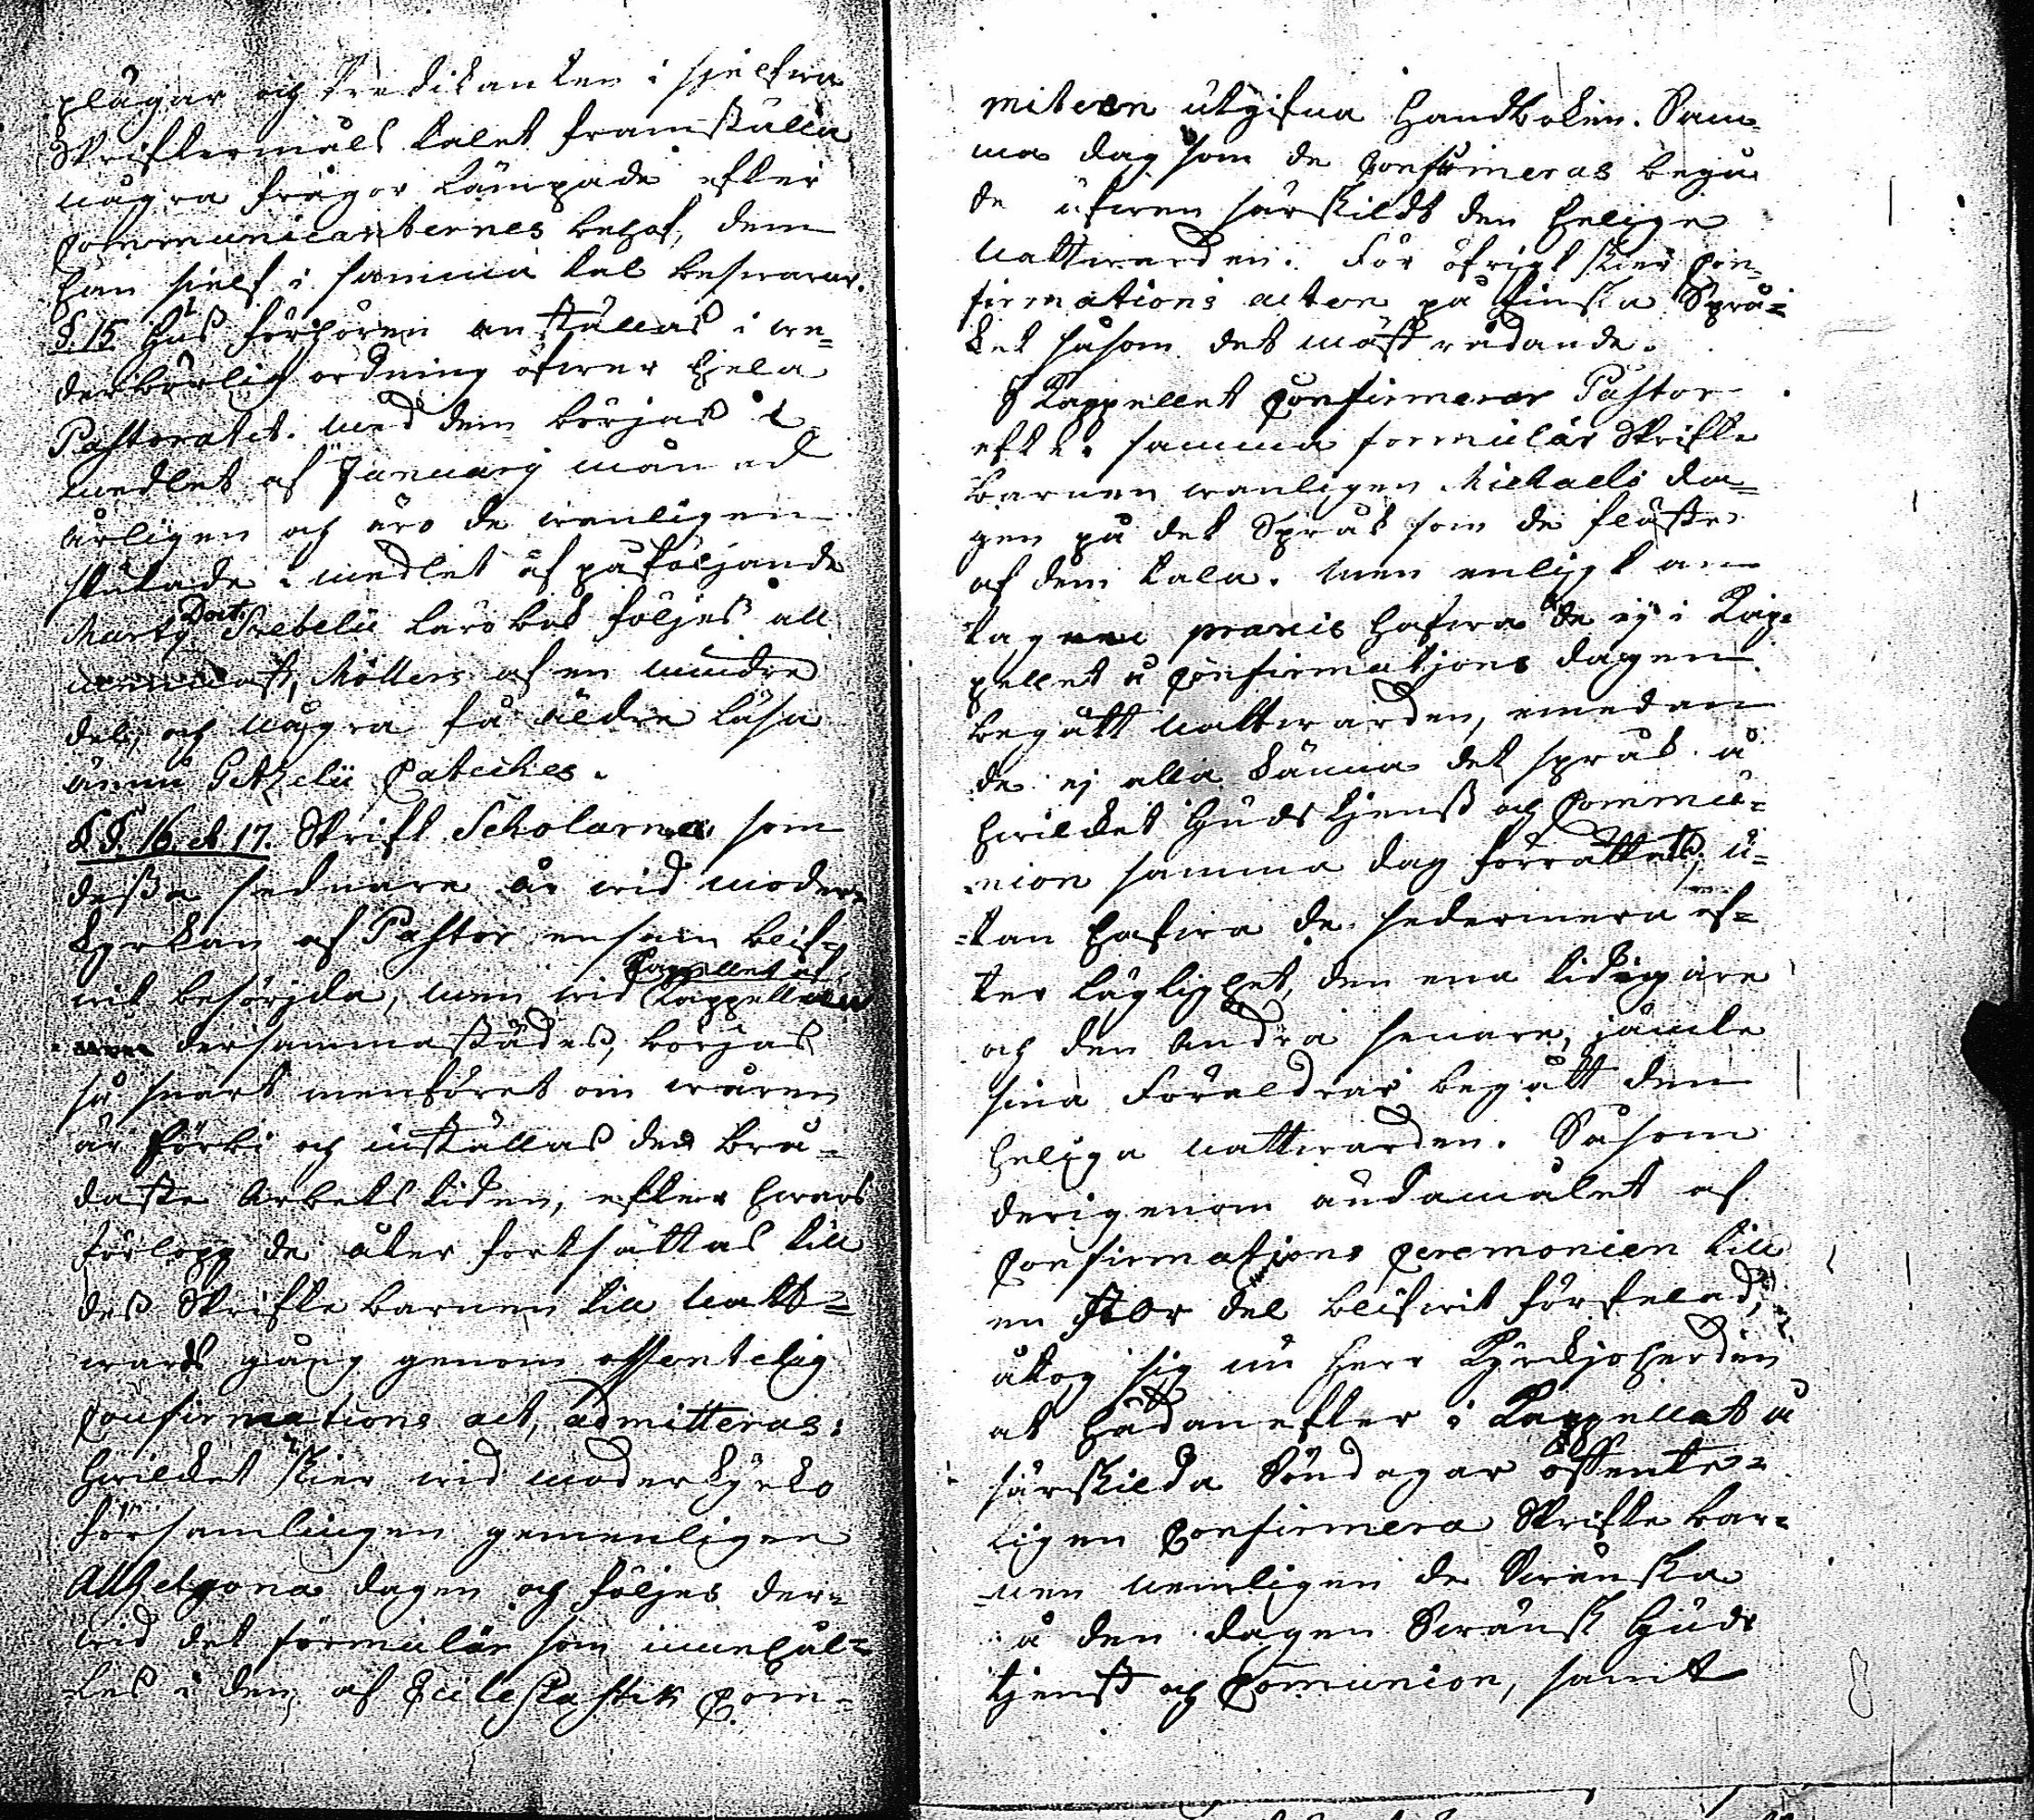 plägar och Predikanten i sjelfwa
Skriftermåls talet framställa
några frågor lämpade efter
Communicanternes behof, dem
han sjelf i samma tal beswarar.
§. 15. Hus förhören anställas i we=
derbörlig ordning öfwer hela
Pastoratet. med dem börjas i
medlet af January månad
årligen och äro de wanligen
slutade i medlet af påföljande
Marty Doct Svebelii lärobok följes all
mennast, Möllers af en mindre
del, och några få äldre läsa
ännu Getzelii Cateches.
§§. 16. et 17. Skrift Scholarna som
dessa sednare år wid moder=
kyrkan af Pastor ensam blif=
wit besörjda, men wid Kappellet af
Kappellanen
dersammastädes, börjas
så snart menföret om wåren
är förbi och inställas den brå=
daste Arbetstiden, efter hwars
förlopp de åter fortsättas till
dess Skriftebarnen till Natt=
wards gång genom offentelig
Confirmations act, admitteras:
hwilcket sker wid moderkyrko
församlingen gemenligen
Allhelgona dagen och följes der=
wid det formulär som innehål=
les i den af Ecclesiastik Com=
miteen utgifna Handboken. Sam=
ma dag som de Confirmeras begå
de äfwen särskildt den Helige
Nattwarden. För öfrigt sker Con=
firmations acten på finska Språ=
ket såsom det mäst rådande.
I Kappellet Confirmerar Pastor
efter samma formulär Skrifte
barnen wanligen Michaelis da=
gen på det Språk som de fläste
af dem tala. Men enligt an=
tagen praxis hafwa de ej i Kap=
pellet å Confirmations dagen
begått nattwarden, emedan
de ej alla känna det språk å
hwilcket Gudstjenst och Commu=
nion samma dag förrättats, u=
=tan hafwa de sedermera ef=
ter läglighet, den ena tidigare
och den Andra senare, jämte
sina Föräldrar begått den
heliga nattwarden. Såsom
derigenom ändamålet af
Confirmations Ceremonien till
en stor del blifwit förfelad,
åtog sig nu Herr Kyrckjoherden
at hädanefter i Kappellet å
särskilda Söndagar offente=
ligen Confirmera Skriftebar=
=nen nemligen de Swänska
å den dagen Swänsk Guds
tjenst och Comunion, samt